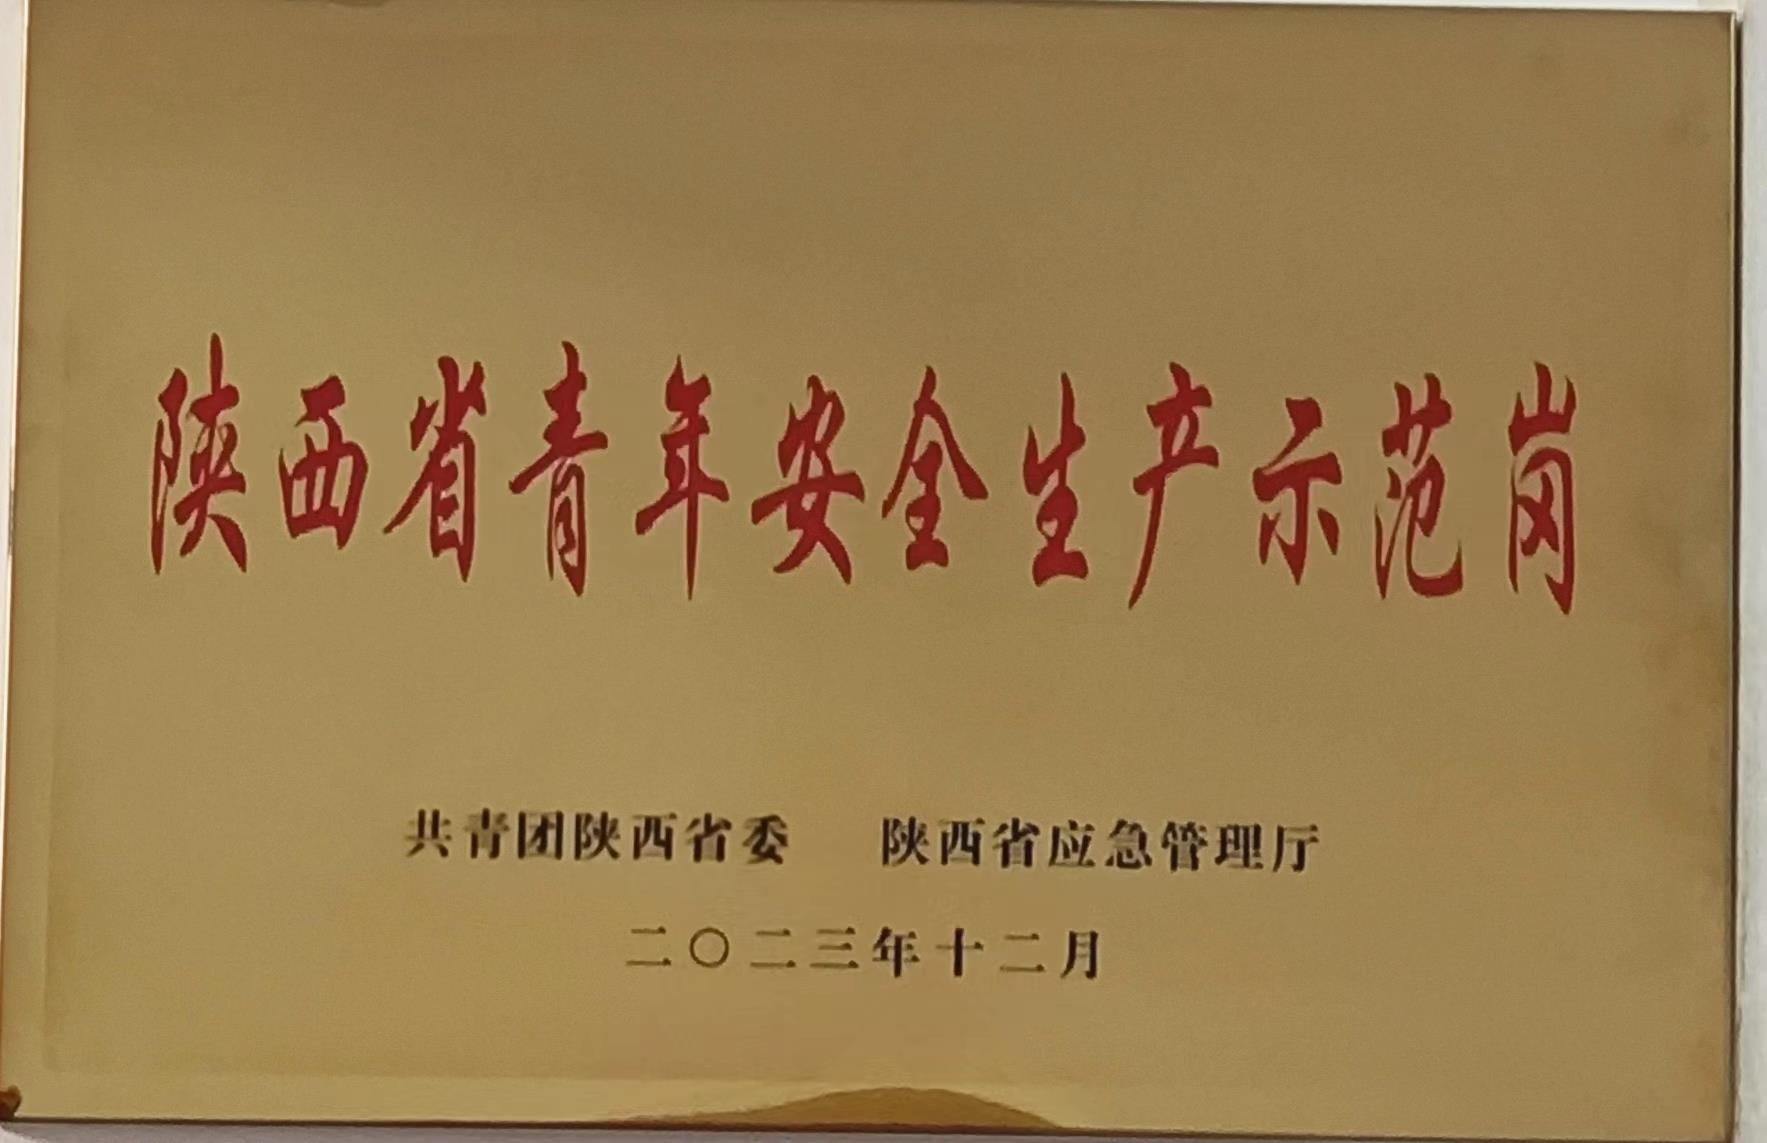 陕西省青年安全生产示范岗
共青团陕西省委 陕西省应急管理厅
二〇二三年十二月